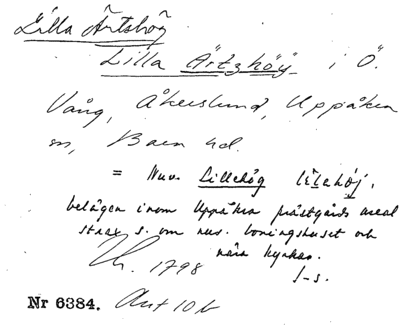 Lilla Ärtshög
Lilla Ärtzhöÿ i Ö.
Vång, Åkerslund, Uppåkra
sn, Bara hd.
= Nuv. Lillehög
belägen inom Uppåkra prästgårds areal
strax s. om nuv. boningshuset och
nära kyrkan.
1798
Nr 6384. Ant 10